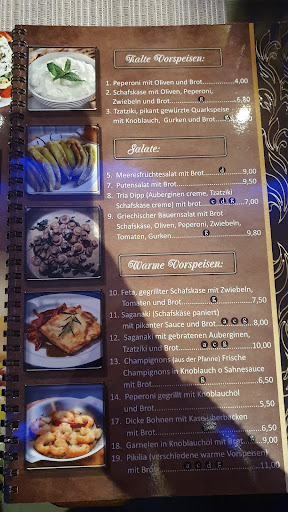 Kalte Vorspeisen:
1. Peperoni mit Oliven und Brot..........4,00
2. Schafskäse mit Oliven, Peperoni,
Zwiebeln und Brot.......g.......6,80
3. Tzatziki, pikant gewürzte Quarkspeise
mit Knoblauch, Gurken und Brot..g
Salate:
5. Meeresfrüchtesalat mit Brot.....d.....9,00
7. Putensalat mit Brot..........9,50
8. Tria Dipp (Auberginen creme, Tzatziki
Schafskäse creme) mit brot......c d g......9,00
9. Griechischer Bauernsalat mit Brot
Schafskäse, Oliven, Peperoni, Zwiebeln,
Tomaten, Gurken..........g..........9,80
Warme Vorspeisen:
10. Feta, gegrillter Schafskäse mit Zwiebeln,
Tomaten und Brot..........g..........7,50
11. Saganaki (Schafskäse paniert)
mit pikanter Sauce und Brot...a c g...8,00
12. Saganaki mit gebratenen Auberginen,
Tzatziki und Brot..........a c g
13. Champignons (aus der Pfanne) Frische
Champignons in Knoblauch o Sahnesauce
mit Brot..........6,50
14. Peperoni gegrillt mit Knoblauchöl
und Brot..........6,50
17. Dicke Bohnen mit Käse überbacken
mit Brot
18. Garnelen in Knoblauchöl mit Brot..g..9,00
19. Pikilia (verschiedene warme Vorspeisen)
mit Brot..........a c d g..........11,00